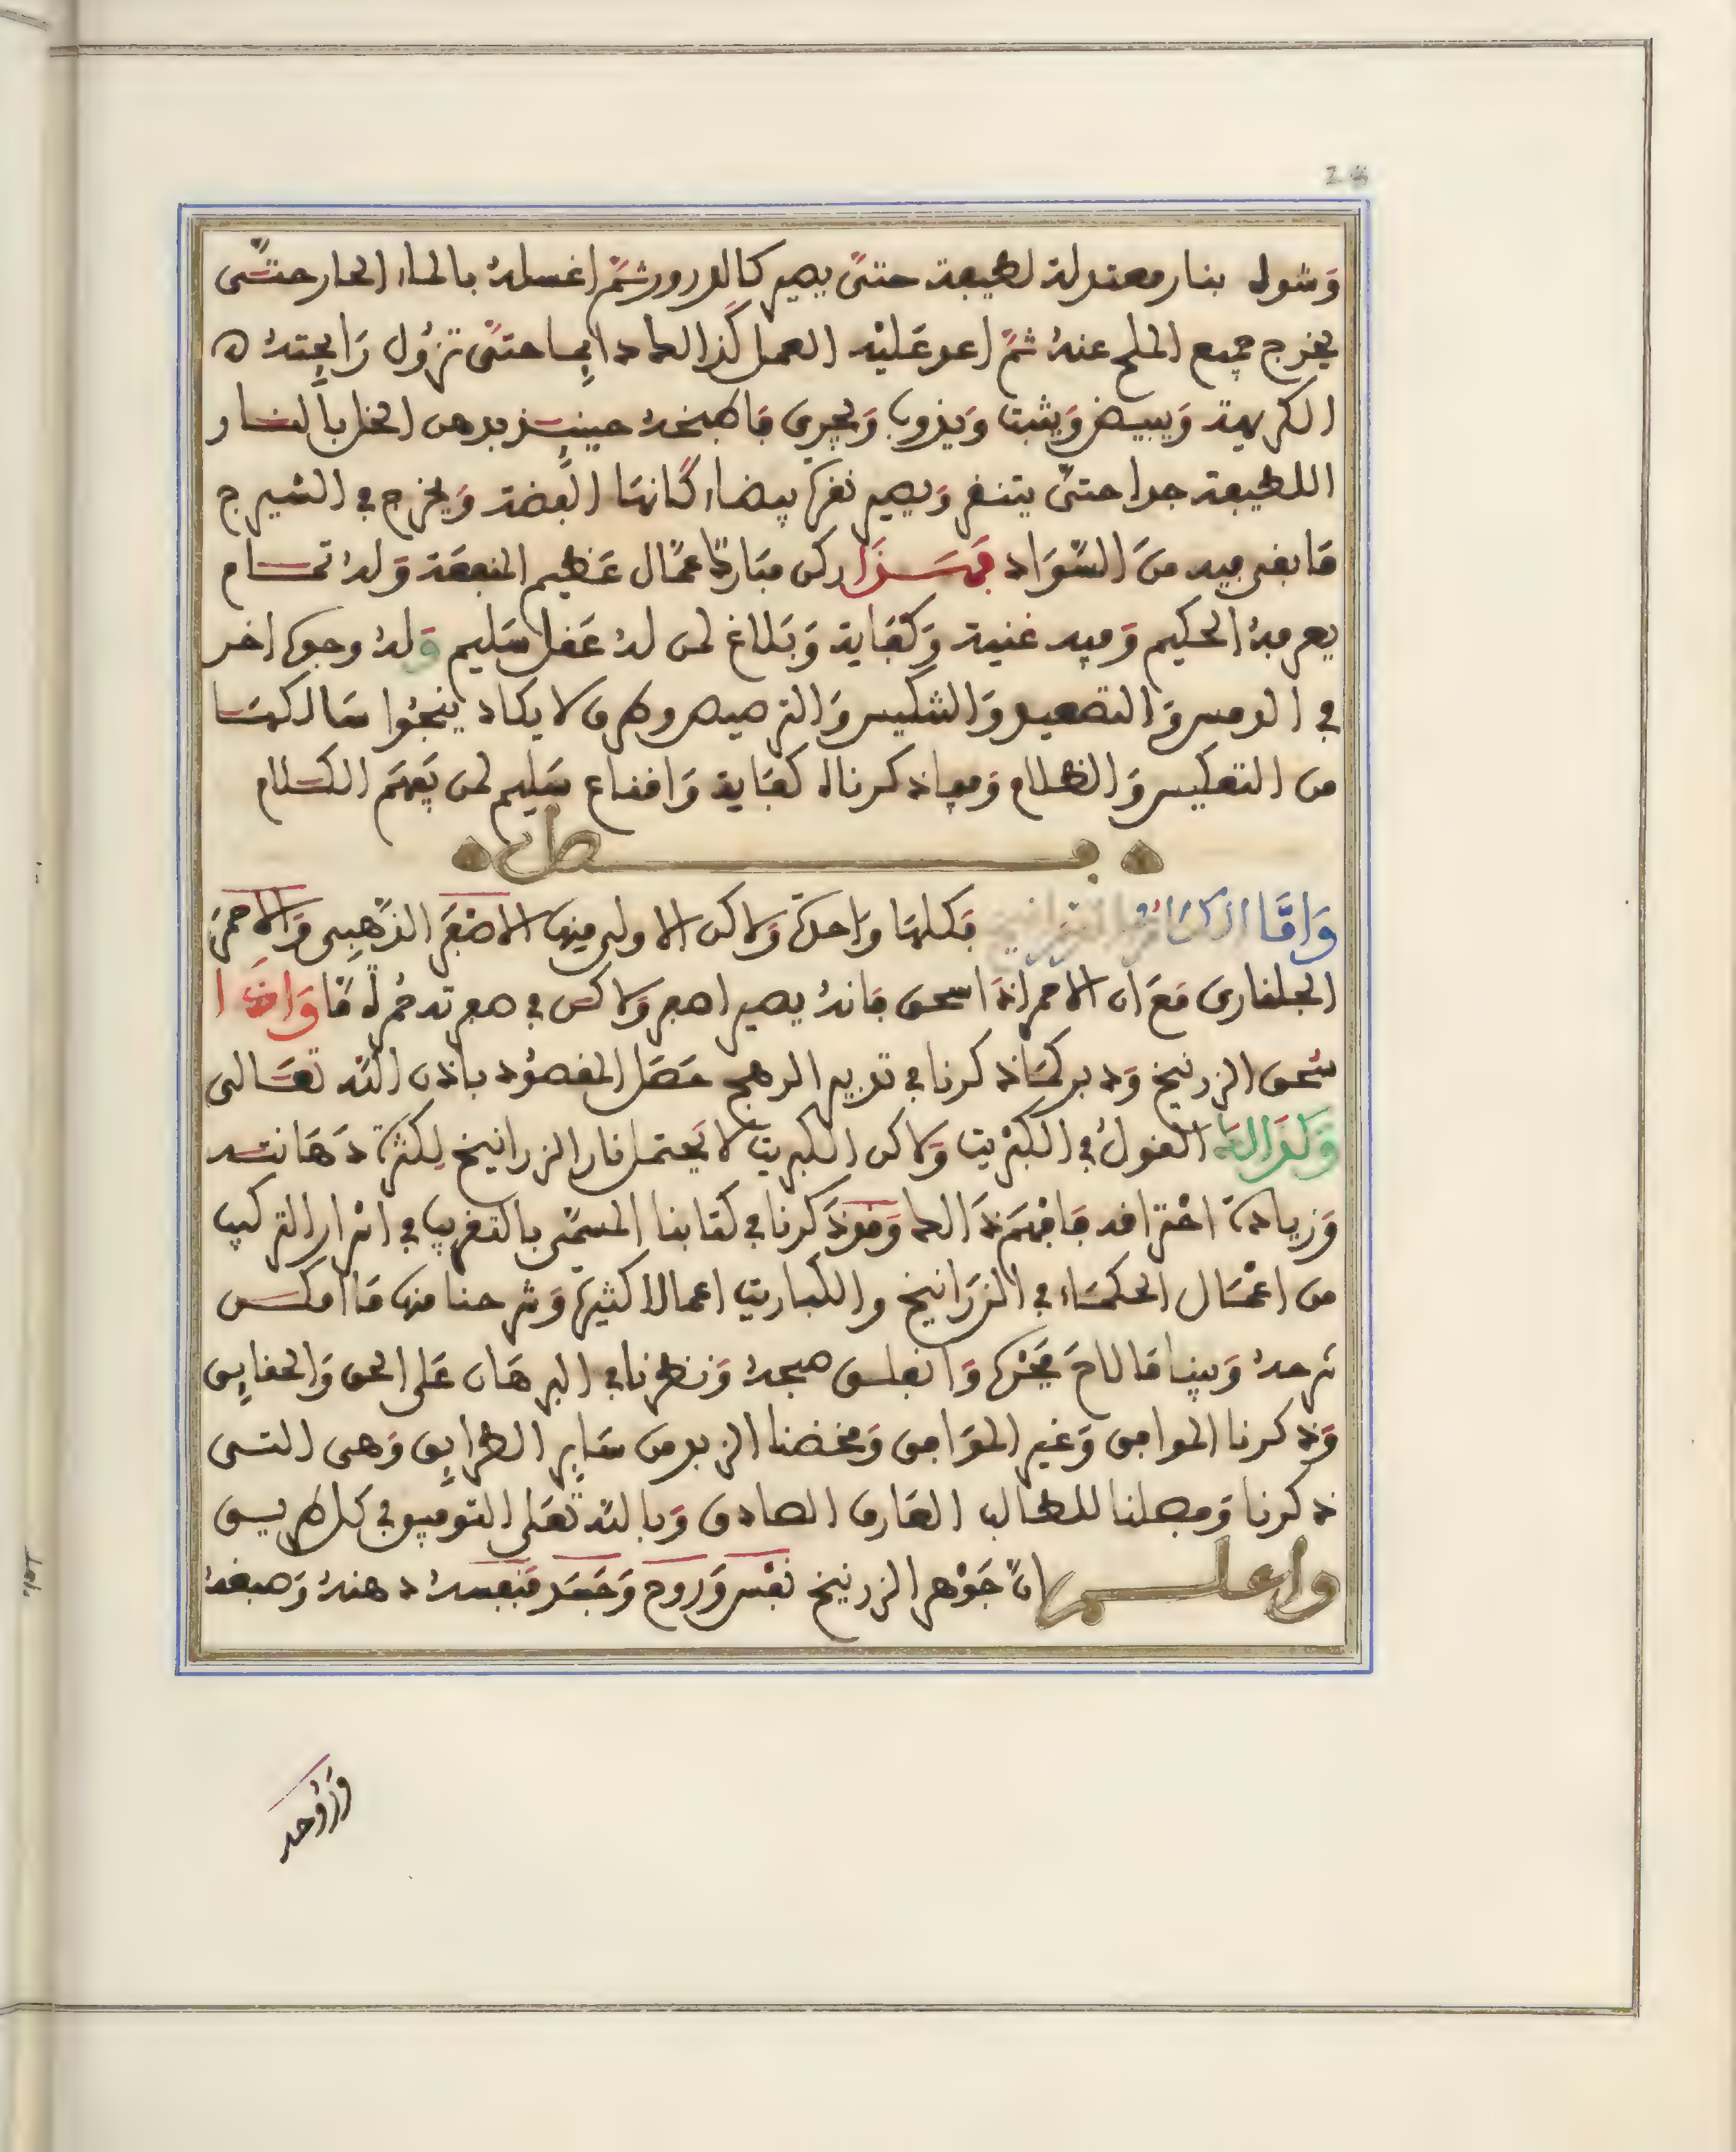 24
وشول بنار معتدلة لطيفة حتى يصير كالدرور ثم اغسله بالماء الحار حتى
يخرج جميع الملح عنه ثم اعد عليه العمل كذالك دايما حتى تزول رايحته
الكريهة ويبيض ويثبت ويذوب ويجري فاطبخه حينيذ بدهن الخل بالنار
اللطيفة جدا حتى يتنقى ويصير نقرة بيضاء كانها الفضة ويخرج في الشيرج
ما بقى فيه من السواد فهذا ركن مبارك عمال عظيم المنفعة وله تمام
يعرفه الحكيم وفيه غنية وكفاية وبلاغ لمن له عقل سليم وله وجوه اخر
في الدمس والتصعيد والتكليس والترصيص وطرق لا يكاد ينجوا سالكها
من التعكيس والظلام وفيما ذكرناه كفاية واقناع سليم لمن يفهم الكلام
فصل
واما الزرانيخ فكلها واحدة ولاكن الاولى منها الاصفر الذهبى والاحمر
الجلنارى مع ان الاحمر اذا اسحق فانه يصير اصفر ولاكن في صفرته حمرة ما واذا
سحق الزرنيخ ودبر كما ذكرنا في تدبير الرهج حصل المقصود باذن الله تعالى
وكذالك القول في الكبريت ولاكن الكبريت لا يحتمل نار الزرانيخ لكثرة دهانته
وزيادة احتراقه فافهم ذالك وقد ذكرنا في كتابنا المسمى بالتقريب في اسرار التركيب
من اعمال الحكماء في الزرانيخ والكباريت اعمالا كثيرة وشرحنا منها ما امكن
شرحه وبينا ما لاح فجره وانفلق صبحه ونظرنا في البرهان على الحق والحقايق
وذكرنا الموافق وغير الموافق ومخضنا الزبد من ساير الطرايق وهى التى
ذكرنا وفصلنا للطالب العارف الصادق وبالله تعلى التوفيق في كل طريق
واعلم ان جوهر الزرنيخ نفس وروح وجسد فنفسه دهنه وصبغه
وروحه